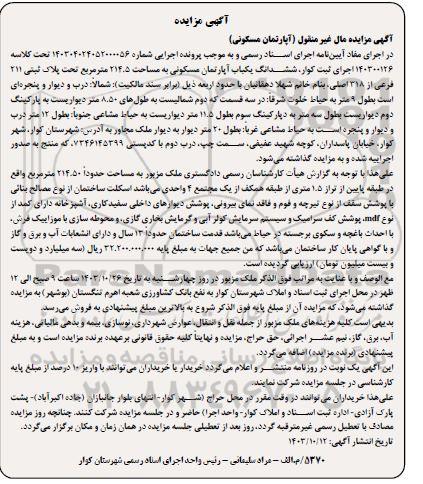 آگهی مزایده
آگهی مزایده مال غیر منقول (آپارتمان مسکونی)
در اجرای مفاد آیین‌نامه اجرای اسناد رسمی و به موجب پرونده اجرایی شماره ۱۴۰۳۰۴۰۲۴۰۵۲۰۰۰۰۵۶ تحت کلاسه
۱۴۰۳۰۰۱۲۶ اجرای ثبت کوار، ششدانگ یکباب آپارتمان مسکونی به مساحت ۲۱۴.۵ مترمربع تحت پلاک ثبتی ۲۱۱
فرعی از ۳۱۰ اصلی، بنام خانم شهلا دهقانیان با حدود اربعه ذیل (برابر سند مالکیت): شمالاً: درب و دیوار و پنجره‌ای
است بطول ۹ متر به حیاط خلوت شرقاً: در سه قسمت که دوم شمالیست به طول‌های ۸.۵۰ متر دیواریست به پارکینگ
دوم دیواریست بطول سه متر به پارکینگ سوم بطول ۱۱.۵ متر دیواریست به حیاط مشاعی جنوباً: بطول ۱۲ متر درب
و دیوار و پنجره است به حیاط مشاعی غرباً: بطول ۲۰ متر دیوار به دیوار ملک مجاور به آدرس: شهرستان کوار، شهر
کوار، خیابان پاسداران، کوچه شهید عفیفی، سمت چپ، درب دوم با کدپستی ۷۳۴۶۱۴۵۳۹۹، که منتج به صدور
اجراییه شده و به مزایده گذاشته می‌شود.
علی‌هذا با توجه به گزارش هیأت کارشناسان رسمی دادگستری ملک مزبور به مساحت حدوداً ۲۱۴.۵۰ مترمربع واقع
در طبقه پایین از تراز ۱.۵ متری از طبقه همکف از یک مجتمع ۴ واحدی می‌باشد اسکلت ساختمان از نوع مصالح بنائی
با پوشش سقف از نوع تیرچه و فوم و فاقد نمای بیرونی، پوشش دیوارهای داخلی سفیدکاری، آشپزخانه دارای کمد از
نوع mdf، پوشش کف سرامیک و سیستم سرمایش کولر آبی و گرمایش بخاری گازی، و محوطه سازی با موزاییک فرش،
با احداث باغچه و سکوی برجسته در حیاط می‌باشد قدمت ساختمان حدودا ۱۳ سال و دارای انشعابات آب و برق و گاز
و با گواهی پایان کار ساختمان می‌باشد که من جمیع جهات به مبلغ پایه ۳۲.۲۰۰.۰۰۰.۰۰۰ ریال (سه میلیارد و دویست
و بیست میلیون تومان) ارزیابی گردیده است.
مع الوصف و با عنایت به مراتب فوق الذکر ملک مزبور در روز چهارشنبه به تاریخ ۱۴۰۳/۱۰/۲۶ ساعت ۹ صبح الی ۱۲
ظهر در محل اجرای ثبت اسناد و املاک شهرستان کوار به نفع بانک کشاورزی شعبه اهرم تنگستان (بوشهر) به مزایده
گذاشته می‌شود، که مزایده آن از مبلغ پایه فوق الذکر شروع به بالاترین مبلغ پیشنهادی به فروش می‌رسد.
بدیهی است کلیه هزینه‌های ملک مزبور از جمله نقل و انتقال، عوارض شهرداری، نوسازی، بیمه و بدهی مالیاتی، هزینه
آب، برق، گاز، نیم عشر اجرائی، حق حراج، مزایده و نهایتا کلیه حقوق قانونی برعهده برنده مزایده است و به مبلغ
پیشنهادی (برنده مزایده) اضافه می‌گردد.
این آگهی یک نوبت در روزنامه منتشر و اعلام می‌گردد خریدار یا خریداران می‌توانند با واریز ۱۰ درصد از مبلغ پایه
کارشناسی در جلسه مزایده شرکت نمایند.
علی‌هذا خریداران می‌توانند در وقت مقرر در محل حراج (شهر کوار- انتهای بلوار جانبازان (جاده اکبرآباد)- پشت
پارک آزادی- اداره ثبت اسناد و املاک کوار- واحد اجرا) حاضر و در جلسه مزایده شرکت کنند. چنانچه روز مزایده
مصادف با تعطیل رسمی غیرمترقبه گردد، روز بعد از تعطیلی جلسه مزایده در همان زمان و مکان برگزار می‌گردد.
تاریخ انتشار آگهی: ۱۴۰۳/۱۰/۱۲
۵۳۷۰/م‌الف - مراد سلیمانی - رئیس واحد اجرای اسناد رسمی شهرستان کوار